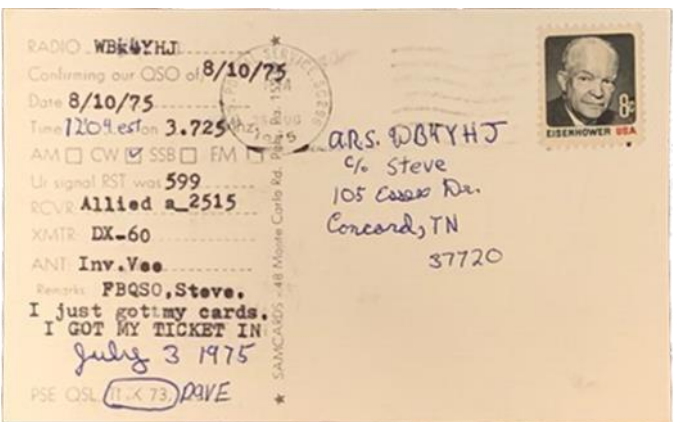 RADIO WB4YHJ
Confirming our QSO of 8/10/75
Date 8/10/75
Time 1204 est on 3.725 hz
AM CW SSB FM
Ur signal RST was 599
RCVR: Allied a_2515
XMTR: DX-60
ANT: Inv.Vee
Remarks: FBQSO,Steve.
I just gottmy cards.
I GOT MY TICKET IN
July 3 1975
PSE QSL, TNX 73, DAVE
SAMCARDS - 48 Monte Carlo Rd. Pgh., Pa.
POSTAL SERVICE
1975
8c
EISENHOWER USA
A.R.S. WB4YHJ
c/o Steve
105 Essex Dr.
Concord, TN
37720